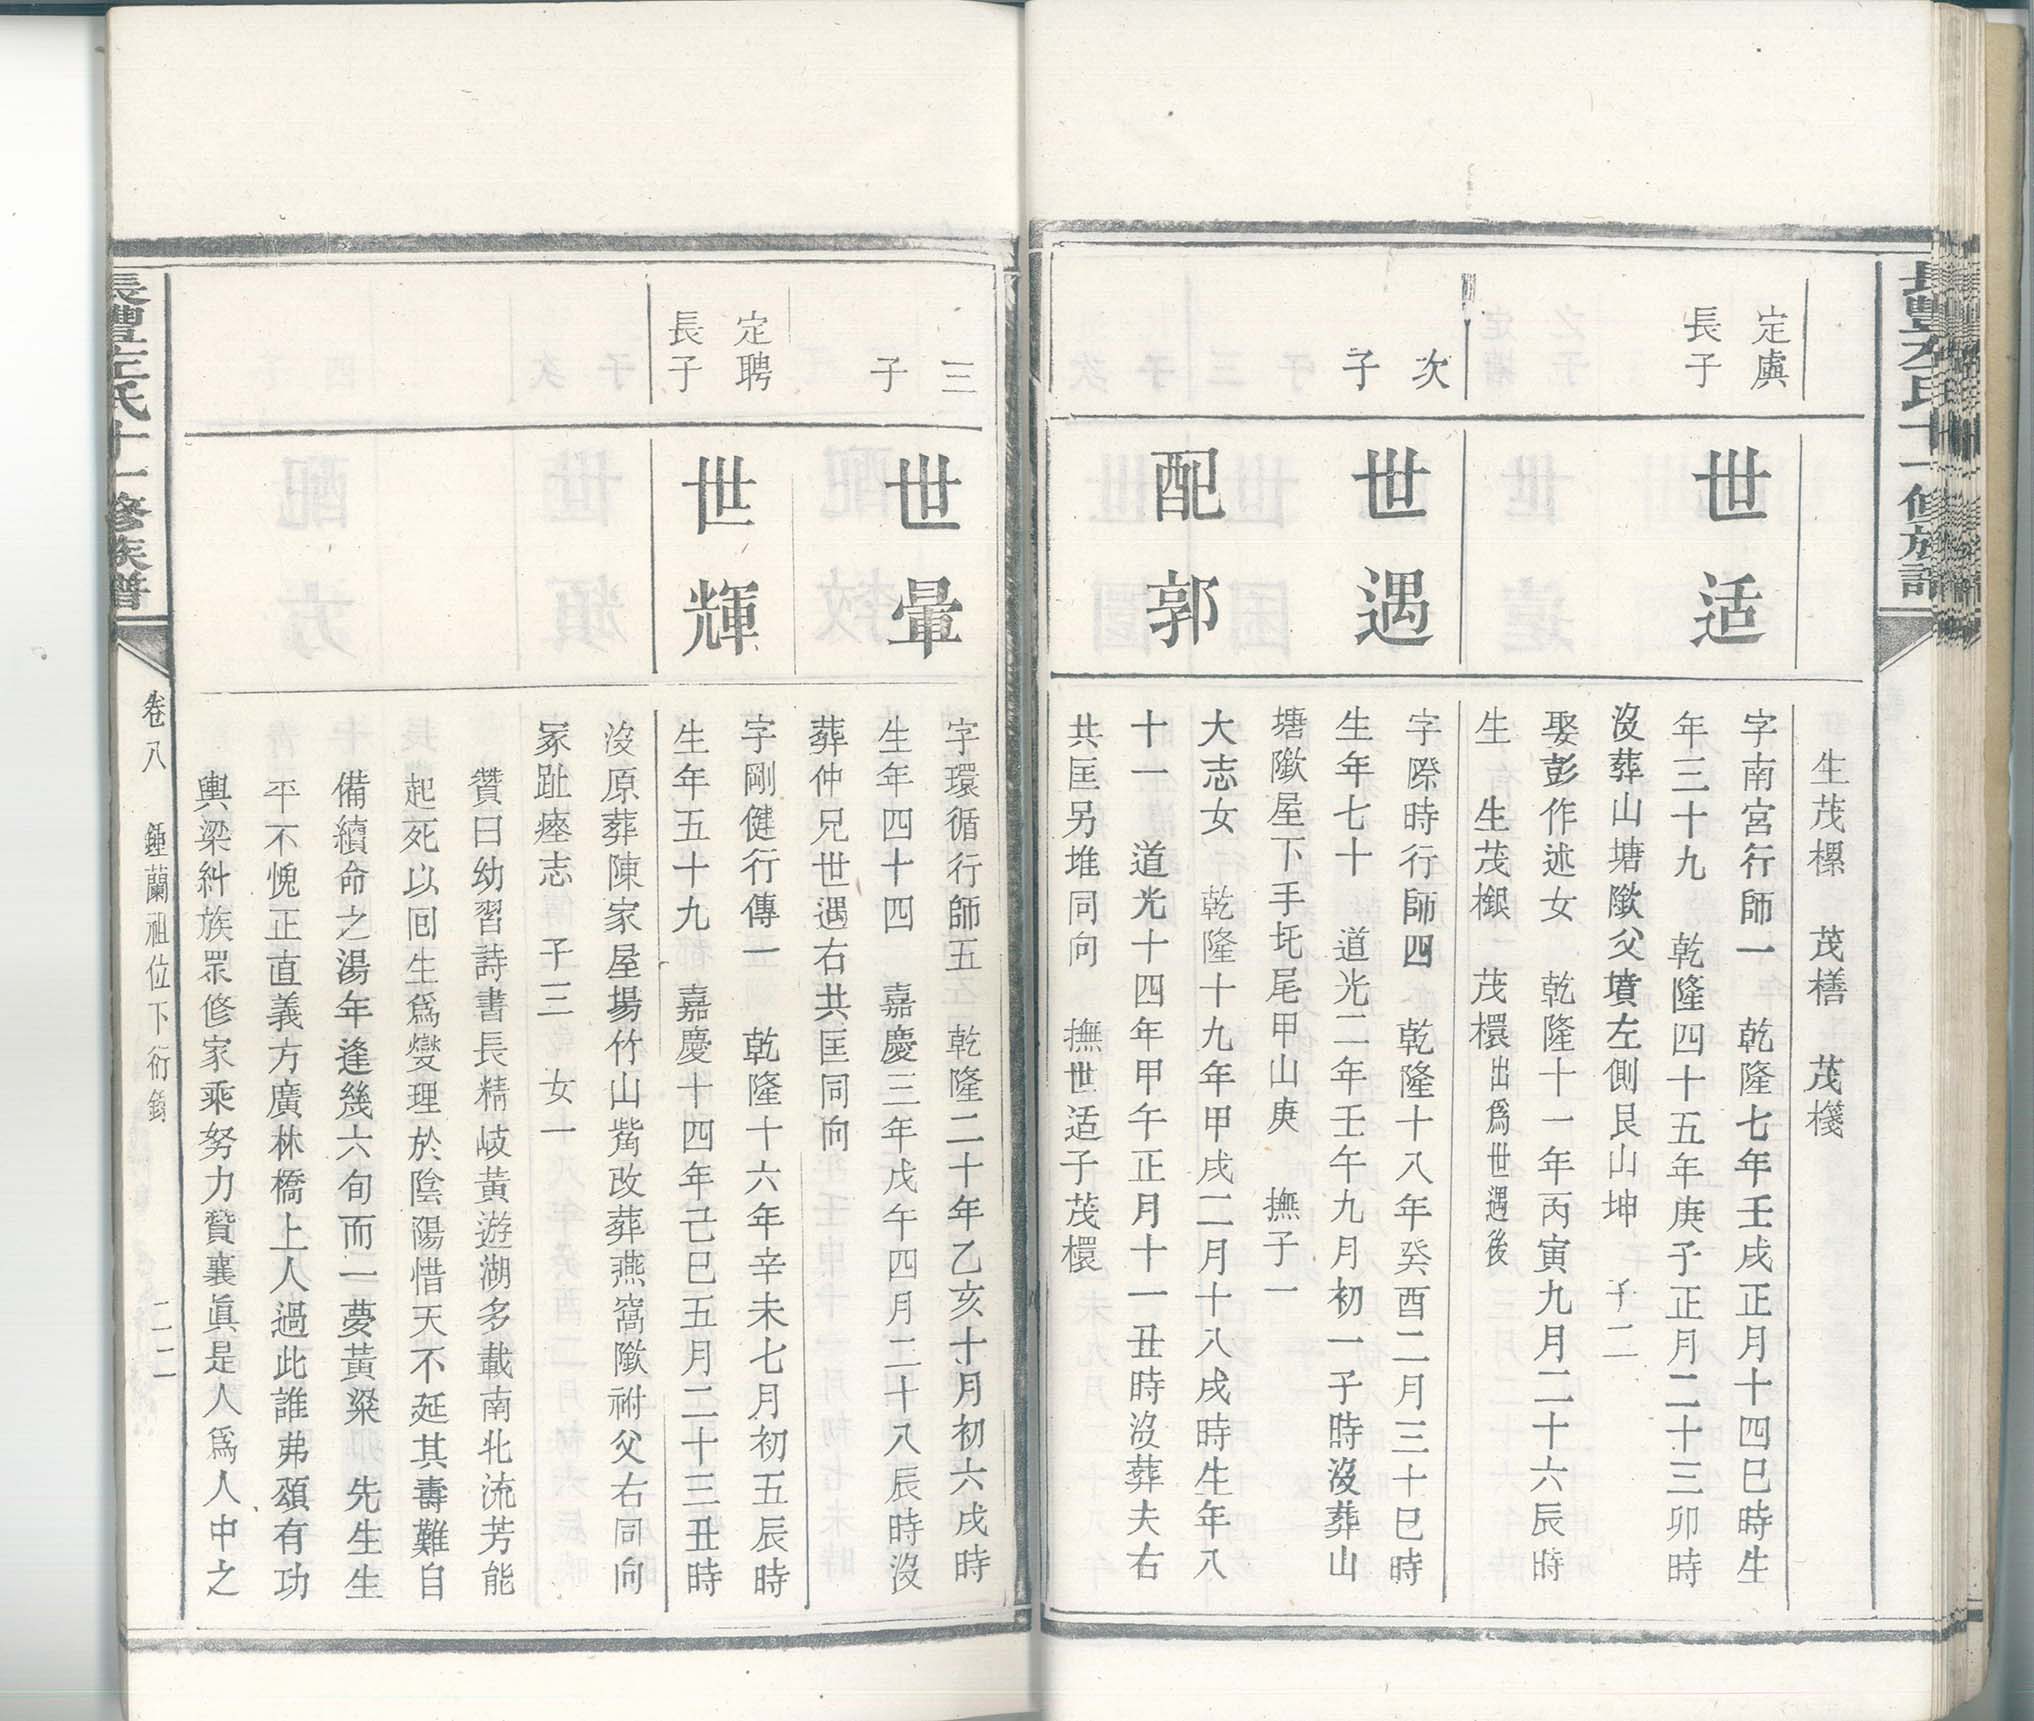 生茂樏　茂橏　茂檥
定虞
長子
世适
字南宮行師一　乾隆七年壬戌正月十四巳時生
年三十九　乾隆四十五年庚子正月二十三卯時
沒葬山塘墩父墳左側艮山坤　子二
娶彭作述女　乾隆十一年丙寅九月二十六辰時
生　生茂椒　茂檈出爲世遇後
次
子
世遇
字際時行師四　乾隆十八年癸酉二月三十巳時
生年七十　道光二年壬午九月初一子時沒葬山
塘墩屋下手坉尾甲山庚　撫子一
配郭
大志女　乾隆十九年甲戌二月十八戌時生年八
十一　道光十四年甲午正月十一丑時沒葬夫右
共匡另堆同向　撫世适子茂檈
三
子
世暈
字環循行師五　乾隆二十年乙亥十月初六戌時
生年四十四　嘉慶三年戊午四月二十八辰時沒
葬仲兄世遇右共匡同向
定聘
長子
世輝
字剛健行傳一　乾隆十六年辛未七月初五辰時
生年五十九　嘉慶十四年己巳五月二十三丑時
沒原葬陳家屋場竹山觜改葬燕窩墩祔父右同向
冢趾瘞志　子三　女一
贊曰幼習詩書長精岐黃遊湖多載南北流芳能
起死以回生爲燮理於陰陽惜天不延其壽難自
備續命之湯年逢幾六旬而一夢黃粱　先生生
平不愧正直義方廣林橋上人過此誰弗頌有功
輿梁糾族眾修家乘努力贊襄眞是人爲人中之
長豐左氏十一修族譜
卷八　鍾蘭祖位下衍錄　二二